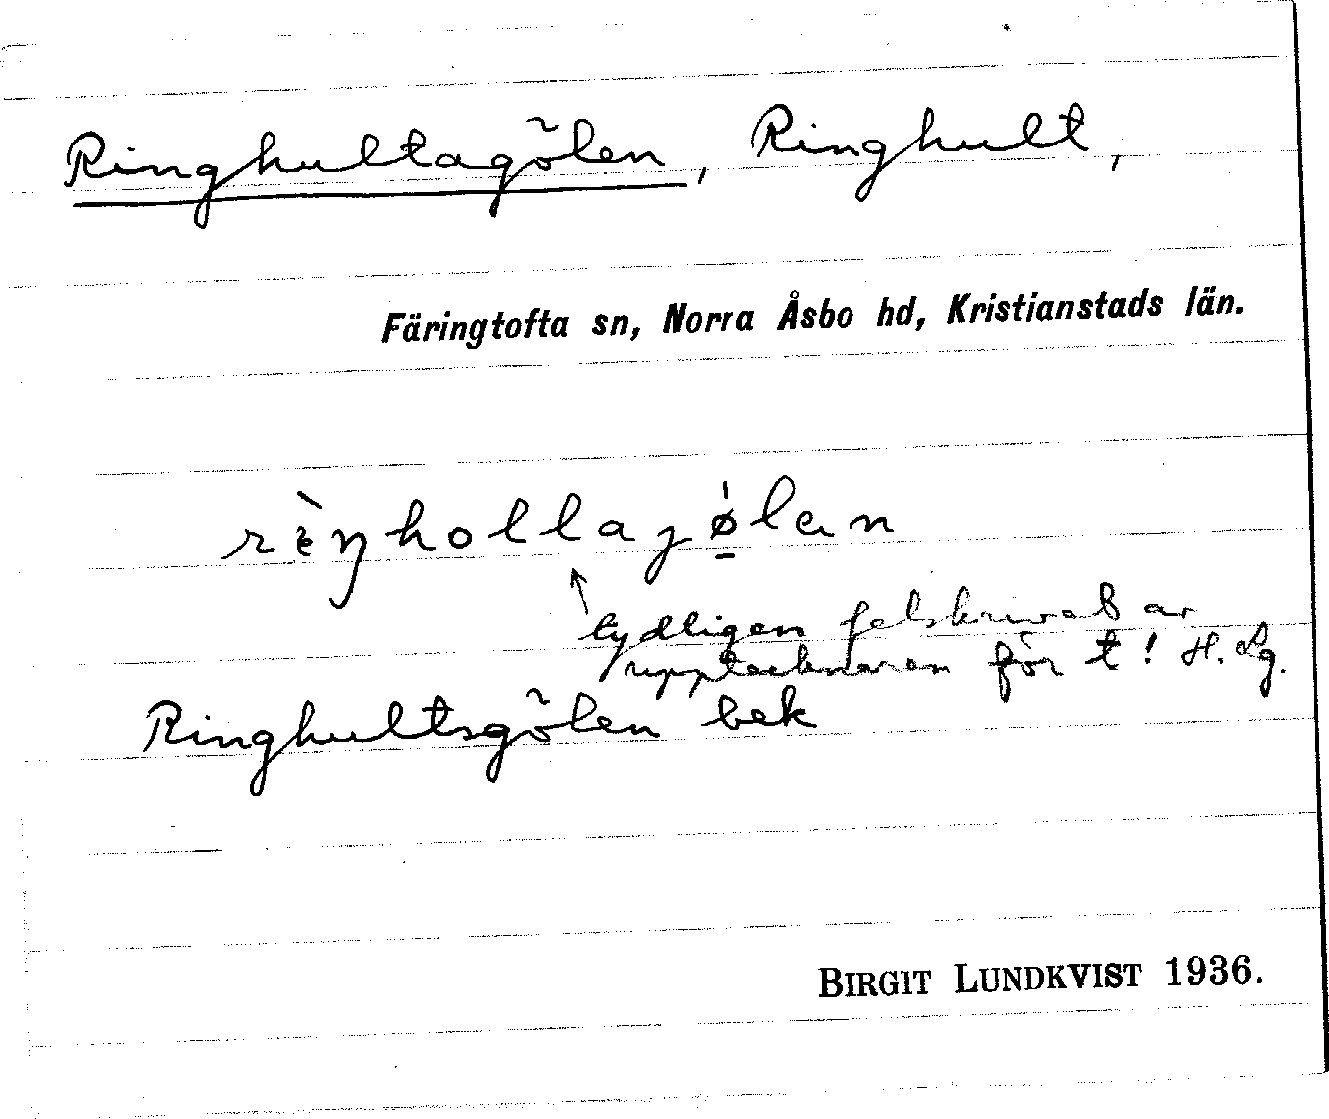 Ringhultagölen, Ringhult,
Färingtofta sn, Norra Åsbo hd, Kristianstads län.
rèŋhollagø̱lan
tydligen felskrivet av
upptecknaren för t! H. Lg.
Ringhultsgölen bek
BIRGIT LUNDKVIST 1936.